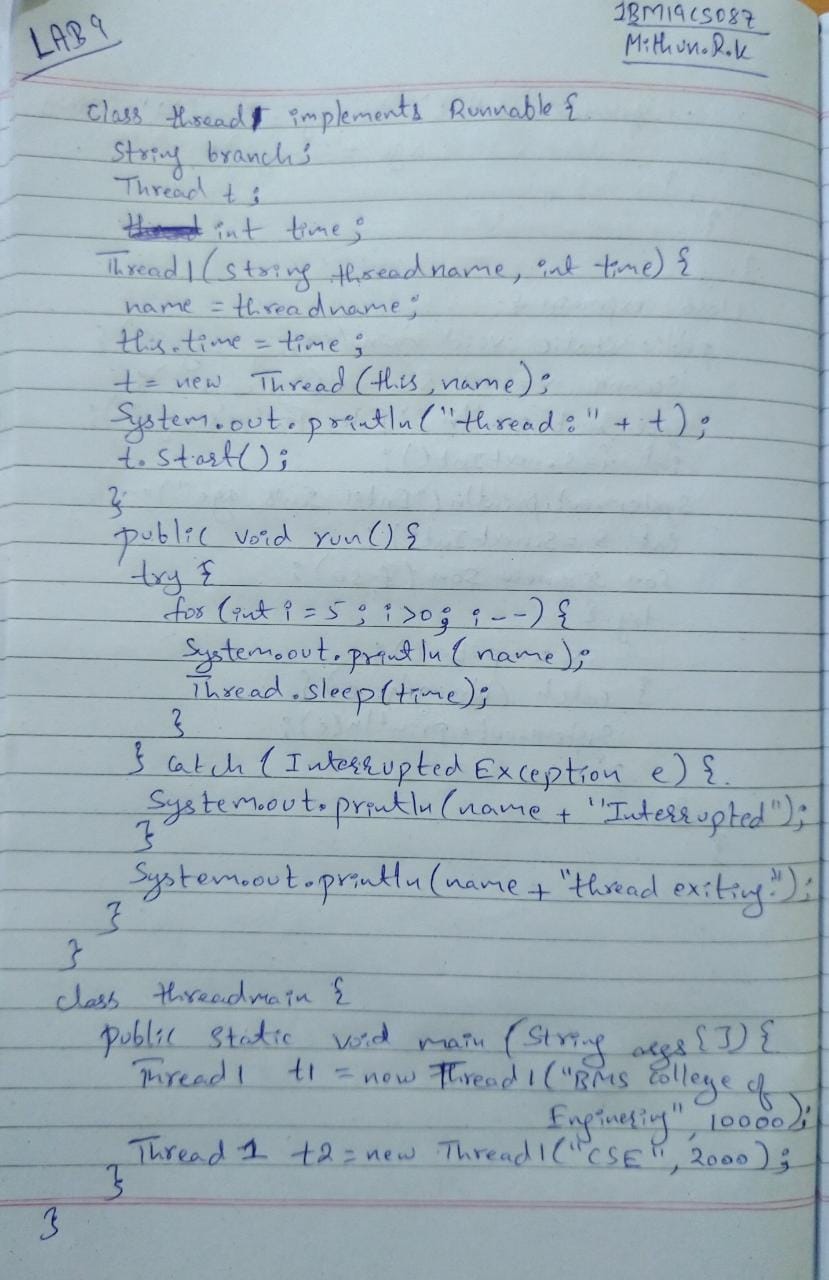 LAB 9
1BM19CS087
Mithun.R.K
class thread1 implements Runnable {
String branch;
Thread t;
int time;
Thread1(string threadname, int time) {
name = threadname;
this.time = time;
t = new Thread (this, name);
System.out.println("thread:" + t);
t.start();
}
public void run() {
try {
for (int i = 5; i >0; i--) {
System.out.println(name);
Thread.sleep(time);
}
} catch (Interrupted Exception e) {
System.out.println(name + "Interrupted");
}
System.out.println(name + "thread exiting.");
}
}
class threadmain {
public static void main (String args[]) {
Thread1 t1 = new Thread1("BMS College of
Enginering", 10000);
Thread 1 t2 = new Thread1("CSE", 2000);
}
}